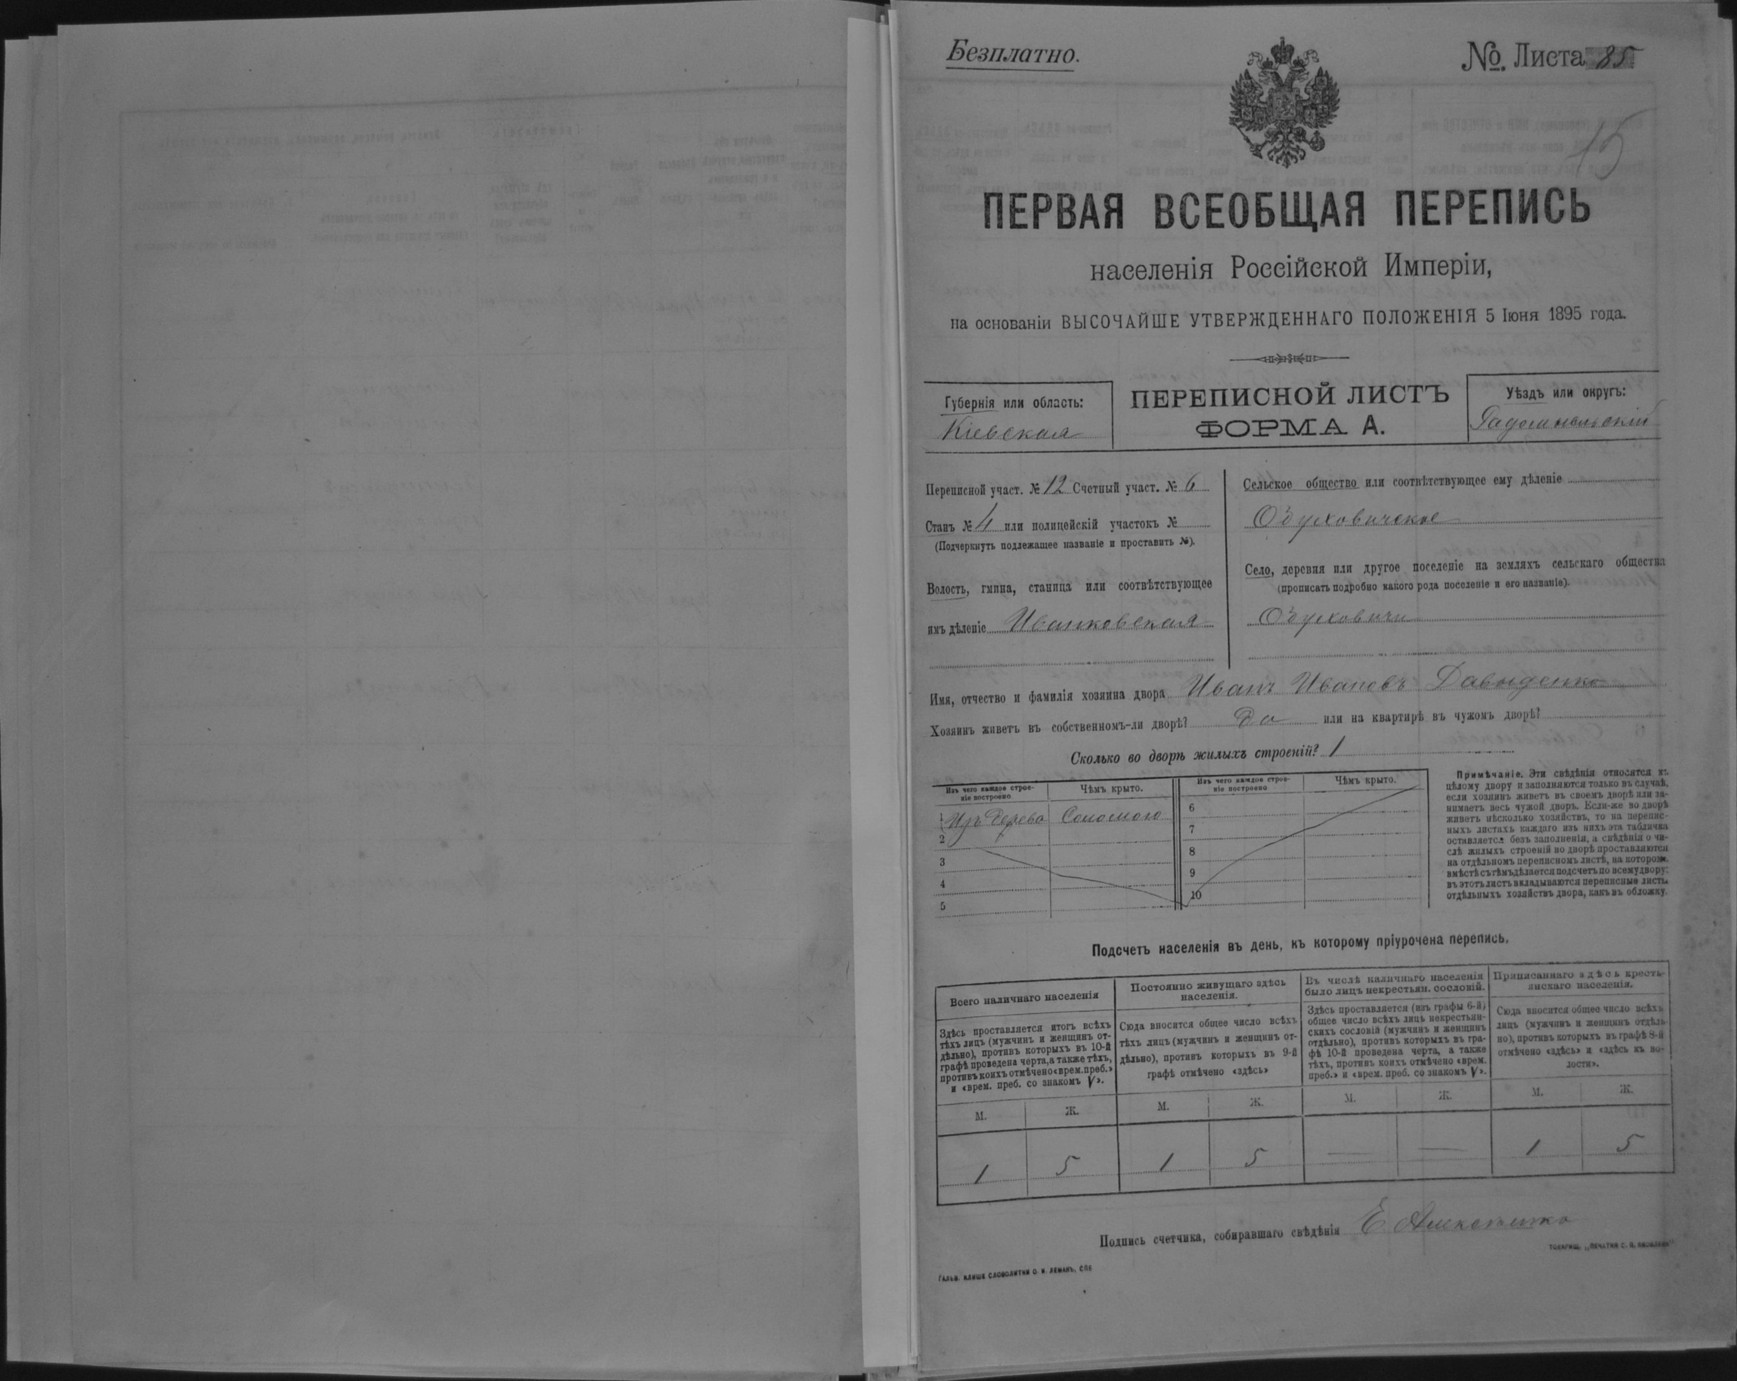 Безплатно.
№ Листа 85
15
ПЕРВАЯ ВСЕОБЩАЯ ПЕРЕПИСЬ
населенія Россійской Имперіи,
на основаніи ВЫСОЧАЙШЕ УТВЕРЖДЕННАГО ПОЛОЖЕНІЯ 5 Іюня 1895 года.
Губернія или область:
Кіевская
ПЕРЕПИСНОЙ ЛИСТЪ
ФОРМА А.
Уѣздъ или округъ:
Радомысльскій
Переписной участ. № 12 Счетный участ. № 6
Станъ № 4 или полицейскій участокъ №
(Подчеркнуть подлежащее названіе и проставить №).
Волость, гмина, станица или соотвѣтствующее
имъ дѣленіе Иванковская
Сельское общество или соотвѣтствующее ему дѣленіе
Обуховичское
Село, деревня или другое поселеніе на земляхъ сельскаго общества
(прописать подробно какого рода поселеніе и его названіе).
Обуховичи
Имя, отчество и фамилія хозяина двора Иванъ Ивановъ Давыденко
Хозяинъ живетъ въ собственномъ-ли дворѣ? Да или на квартирѣ въ чужомъ дворѣ?
Сколько во дворѣ жилыхъ строеній? 1
Изъ чего каждое строе-
ніе построено
Чѣмъ крыто.
Изъ чего каждое строе-
ніе построено
Чѣмъ крыто.
1 Изъ дерева Соломою
2
3
4
5
6
7
8
9
10
Примѣчаніе. Эти свѣдѣнія относятся къ
цѣлому двору и заполняются только въ случаѣ,
если хозяинъ живетъ въ своемъ дворѣ или за-
нимаетъ весь чужой дворъ. Если-же во дворѣ
живетъ нѣсколько хозяйствъ, то на перепис-
ныхъ листахъ каждаго изъ нихъ эта табличка
оставляется безъ заполненія, а свѣдѣнія о чи-
слѣ жилыхъ строеній во дворѣ проставляются
на отдѣльномъ переписномъ листѣ, на которомъ
вмѣстѣ съ тѣмъ дѣлается подсчетъ по всему двору;
въ этотъ листъ вкладываются переписные листы
отдѣльныхъ хозяйствъ двора, какъ въ обложку.
Подсчетъ населенія въ день, къ которому пріурочена перепись.
Всего наличнаго населенія
Здѣсь проставляется итогъ всѣхъ
тѣхъ лицъ (мужчинъ и женщинъ от-
дѣльно), противъ которыхъ въ 10-й
графѣ проведена черта, а также тѣхъ,
противъ коихъ отмѣчено «врем. преб.»
и «врем. преб. со знакомъ V».
Постоянно живущаго здѣсь
населенія.
Сюда вносится общее число всѣхъ
тѣхъ лицъ (мужчинъ и женщинъ от-
дѣльно), противъ которыхъ въ 9-й
графѣ отмѣчено «здѣсь»
Въ числѣ наличнаго населенія
было лицъ некрестьян. сословій.
Здѣсь проставляется (изъ графы 6-й)
общее число всѣхъ лицъ некрестьян-
скихъ сословій (мужчинъ и женщинъ
отдѣльно), противъ которыхъ въ гра-
фѣ 10-й проведена черта, а также
тѣхъ, противъ коихъ отмѣчено «врем.
преб.» и «врем. преб. со знакомъ V».
Приписаннаго здѣсь кресть-
янскаго населенія.
Сюда вносится общее число всѣхъ
лицъ (мужчинъ и женщинъ отдѣль-
но), противъ которыхъ въ графѣ 8-й
отмѣчено «здѣсь» и «здѣсь къ во-
лости».
М. Ж. М. Ж. М. Ж. М. Ж.
1 5 1 5 — — 1 5
Подпись счетчика, собиравшаго свѣдѣнія Е.
ГАЛЬВ. КЛИШЕ СЛОВОЛИТНИ О. И. ЛЕМАНЪ, СПБ
ТОВАРИЩ. „ПЕЧАТНЯ С. П. ЯКОВЛЕВА“